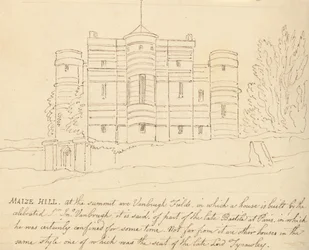 MAIZE HILL. at the summit are Vanbrugh Fields, in which a house is built by the
celebrated Sr. Jn. Vanbrugh it is said of part of the late Bastile at Paris, in which
he was certainly confined for some time. Not far from it are other houses in the
same style, one of which was the seat of the late Lord Tyrawley.